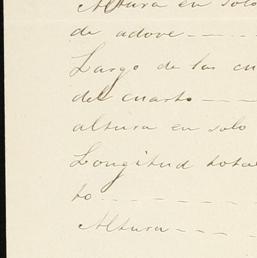 Altura en solo
de adove - - - -
Largo de las cu
del cuarto - - -
altura en solo
Longitud tota
to - - - - - - -
Altura - - - -